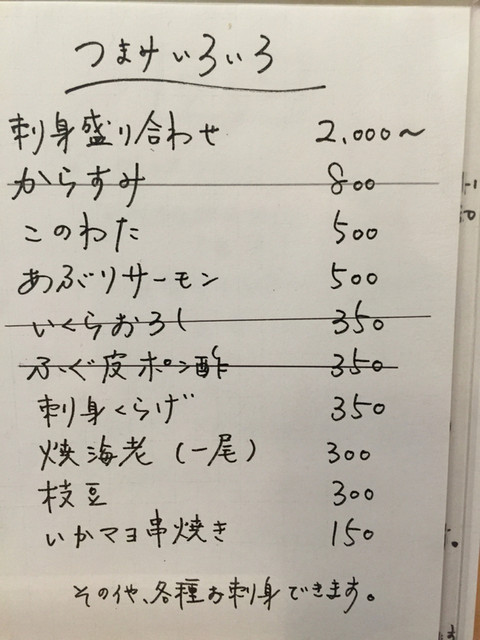 つまみいろいろ
刺身盛り合わせ 2,000～
からすみ 800
このわた 500
あぶりサーモン 500
いくらおろし 350
ふぐ皮ポン酢 350
刺身くらげ 350
焼海老(一尾) 300
枝豆 300
いかマヨ串焼き 150
その他、各種お刺身できます。